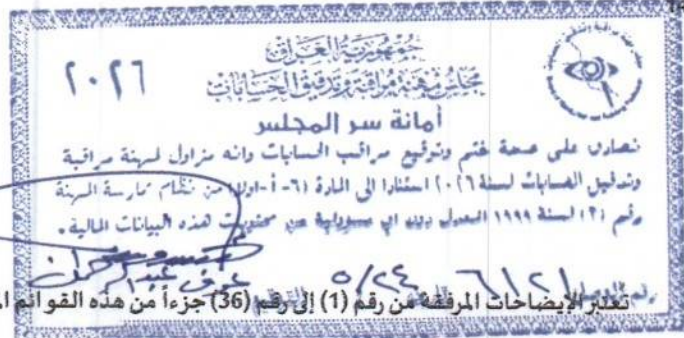 جمهورية العراق
مجلس مهنة مراقبة وتدقيق الحسابات
٢٠٢٦
أمانة سر المجلس
نصادق على صحة ختم وتوقيع مراقب الحسابات وانه مزاول لمهنة مراقبة
وتدقيق الحسابات لسنة ٢٠٢٦ استنادا الى المادة (٦-أ-اولا) من نظام ممارسة المهنة
رقم (٣) لسنة ١٩٩٩ المعدل دون اي مسؤولية عن محتويات هذه البيانات المالية.
٥/٢٤
تعتبر الإيضاحات المرفقة من رقم (1) إلى رقم (36) جزءاً من هذه القوائم